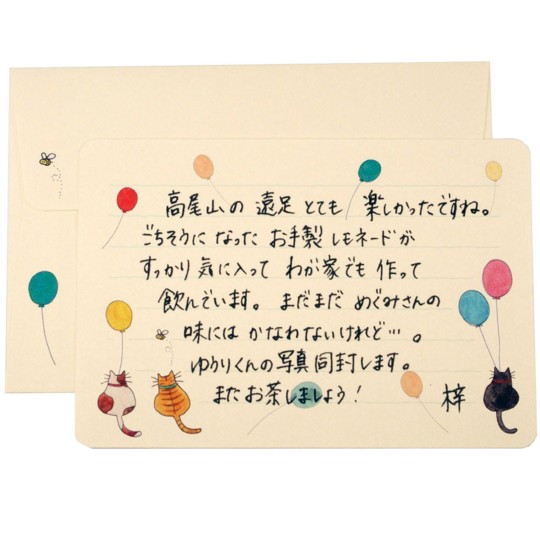 高尾山の 遠足 とても 楽しかったですね。
ごちそうに なった お手製 レモネードが
すっかり 気に入って わが家でも 作って
飲んでいます。 まだまだ めぐみさんの
味には かなわないけれど…。
ゆうりくんの 写真 同封します。
また お茶しましょう！ 梓